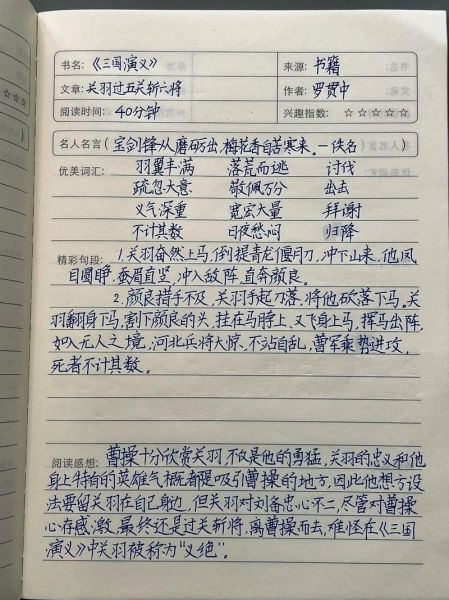 书名：《三国演义》 来源：书籍
文章：关羽过五关斩六将 作者：罗贯中
阅读时间：40分钟 兴趣指数：☆☆☆☆☆
名人名言（宝剑锋从磨砺出，梅花香自苦寒来。—佚名）
优美词汇： 羽翼丰满 落荒而逃 讨伐
疏忽大意 敬佩万分 出击
义气深重 宽宏大量 拜谢
不计其数 日夜愁闷 归降
精彩句段： 1.关羽奋然上马，倒提青龙偃月刀，冲下山来，他凤
目圆睁，蚕眉直竖，冲入敌阵，直奔颜良。
2.颜良措手不及，关羽手起刀落，将他砍落下马，关
羽翻身下马，割下颜良的头，挂在马脖上，又飞身上马，挥马出阵，
如入无人之境，河北兵将大惊，不沾自乱，曹军乘势进攻，
死者不计其数。
阅读感想： 曹操十分欣赏关羽，不仅是他的勇猛，关羽的忠义和他
身上特有的英雄气概者是吸引曹操的地方，因此他想方设
法要留关羽在自己身边，但关羽对刘备忠心不二，尽管对曹操
心存感激，最终还是过关斩将，离曹操而去，难怪在《三国
演义》中关羽被称为“义绝”。